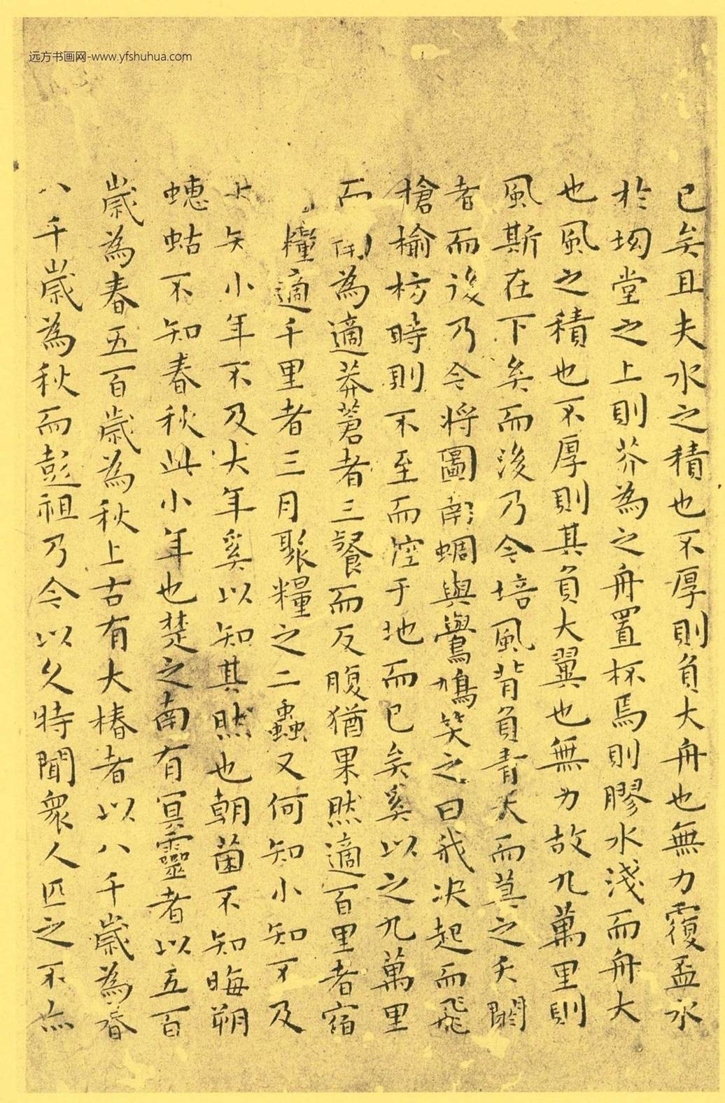 远方书画网-www.yfshuhua.com
已矣且夫水之積也不厚則負大舟也無力覆盃水
於坳堂之上則芥為之舟置杯焉則膠水淺而舟大
也風之積也不厚則其負大翼也無力故九萬里則
風斯在下矣而後乃今培風背負青天而莫之夭閼
者而後乃今將圖南蜩與鷽鳩笑之曰我決起而飛
槍榆枋時則不至而控于地而已矣奚以之九萬里
而為適莽蒼者三餐而反腹猶果然適百里者宿
糧適千里者三月聚糧之二蟲又何知小知不及
小年不及大年奚以知其然也朝菌不知晦朔
蟪蛄不知春秋此小年也楚之南有冥靈者以五百
歲為春五百歲為秋上古有大椿者以八千歲為春
八千歲為秋而彭祖乃今以久特聞衆人匹之不亦